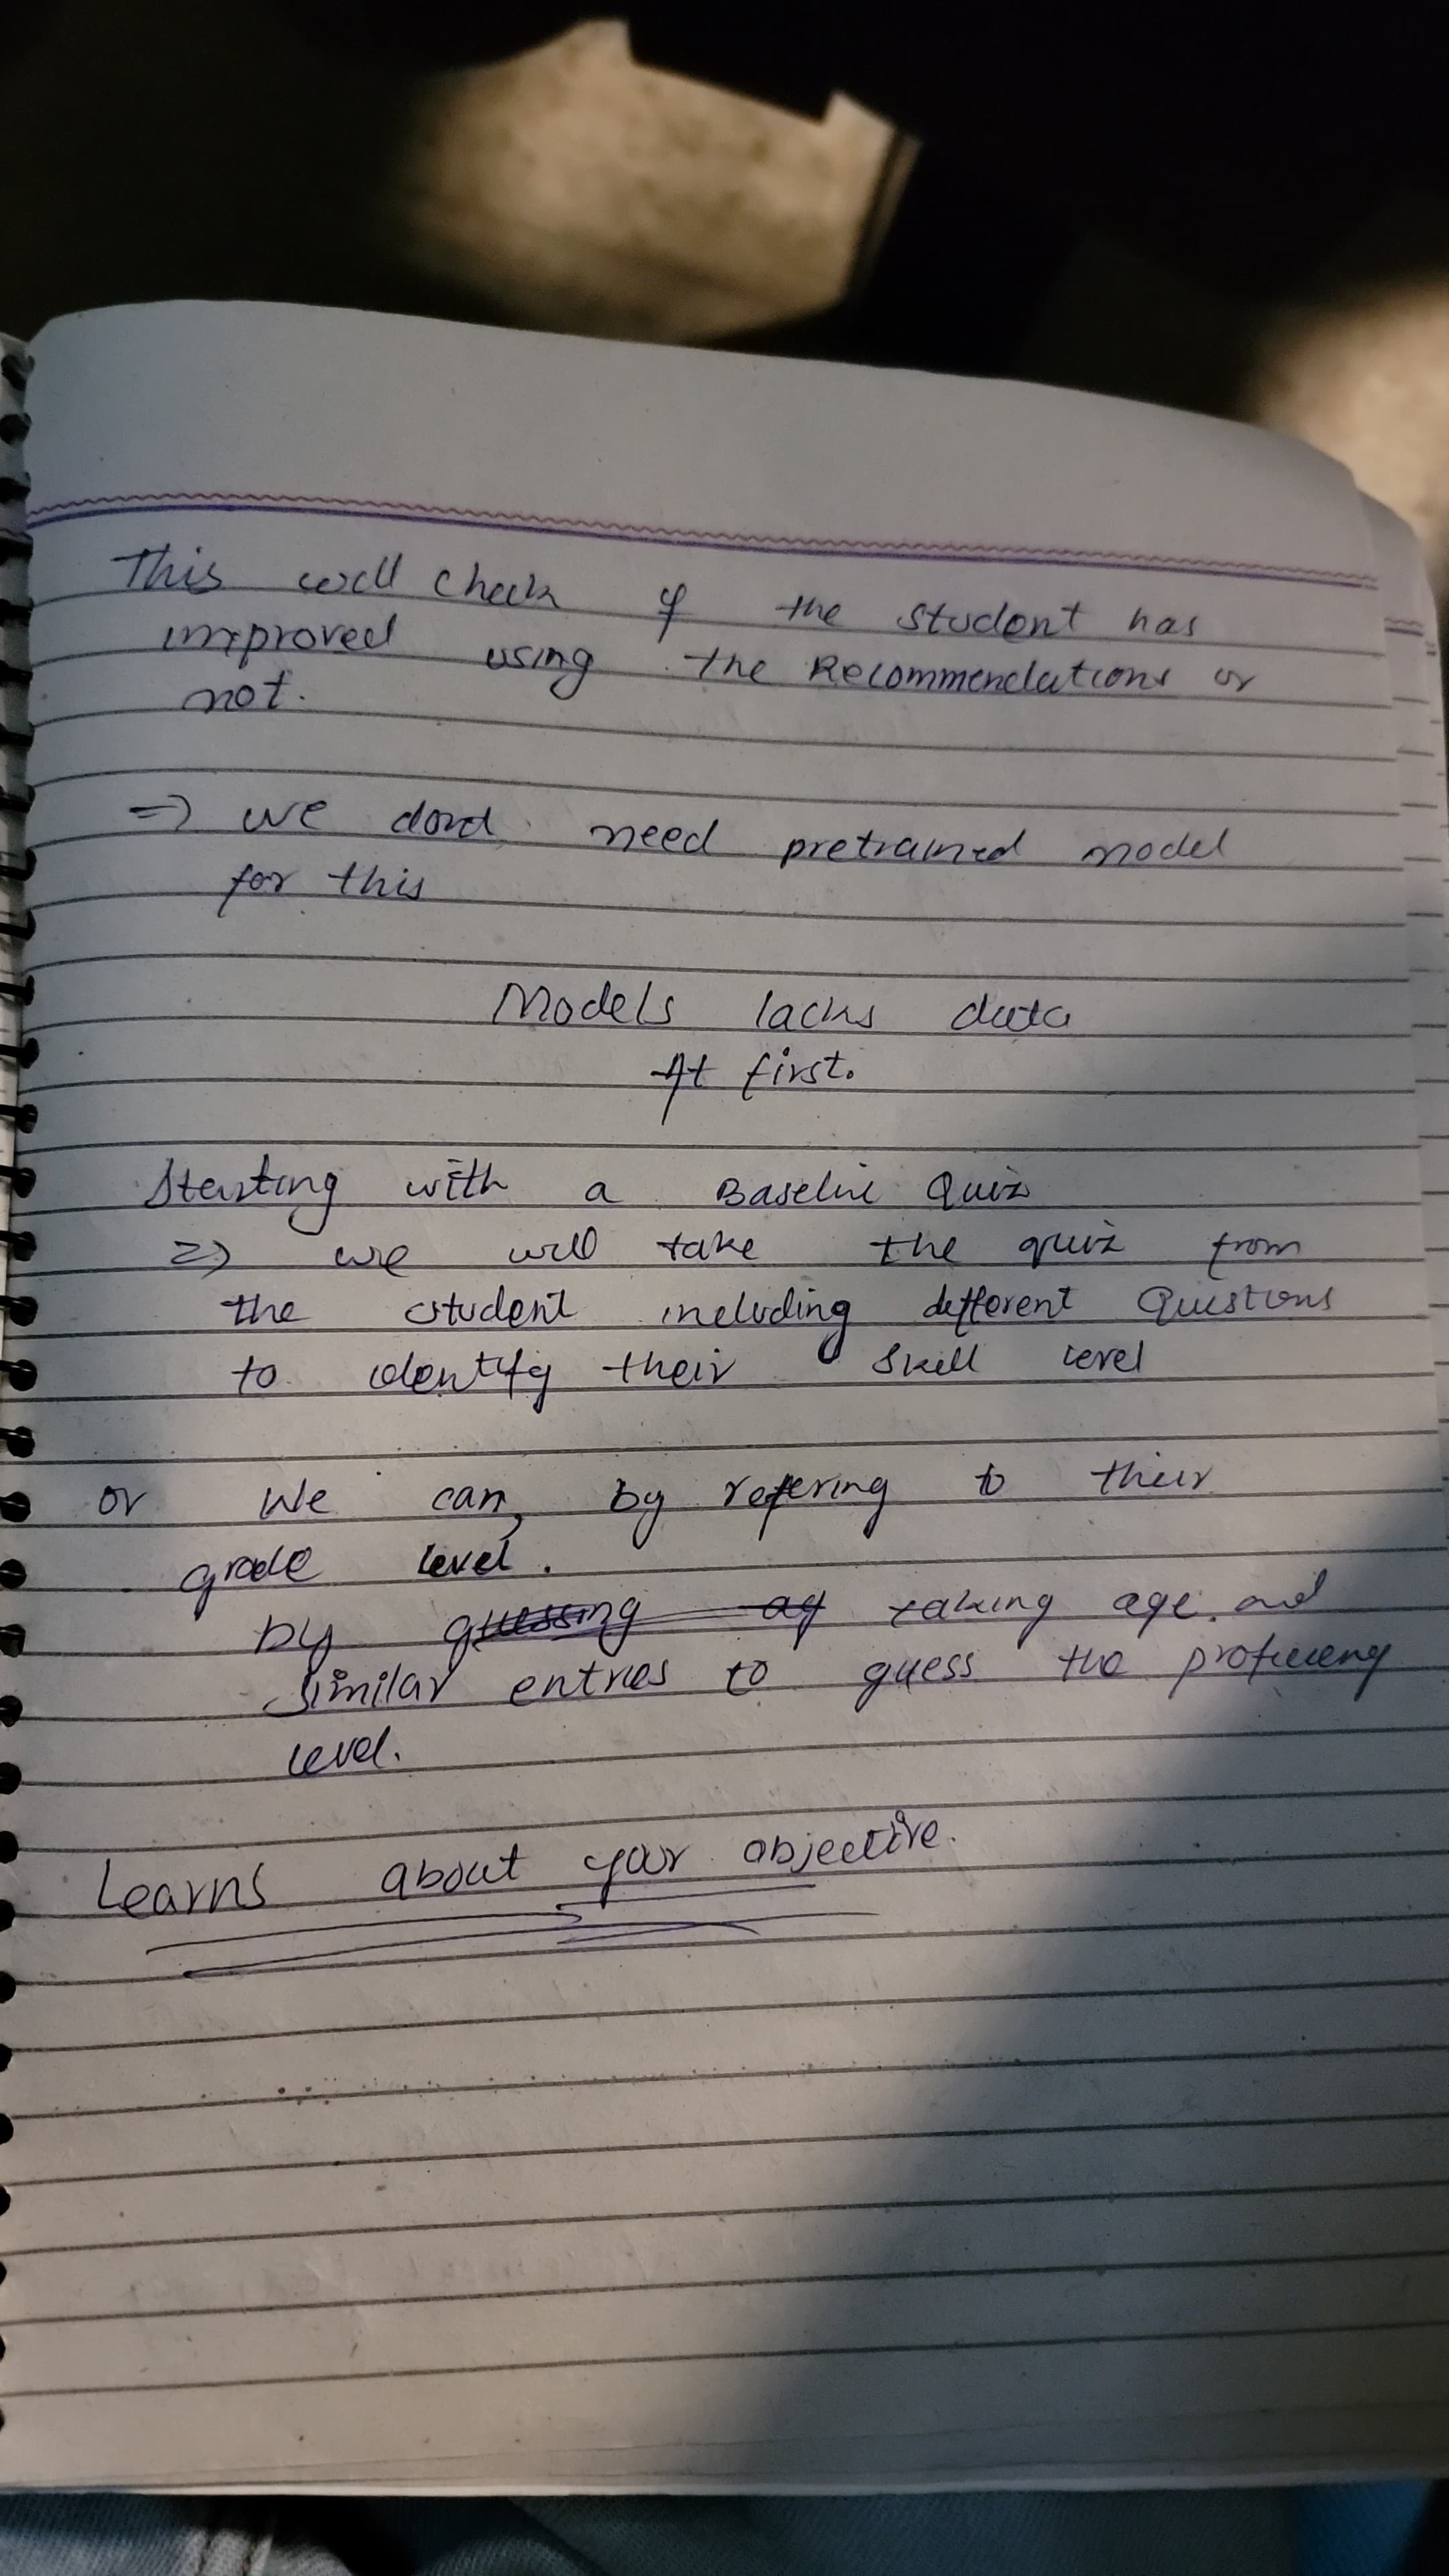 This will check if the student has
improved using the Recommendations or
not.
=> we dont need pretrained model
for this
Models lacks data
At first.
Starting with a Baseline Quiz
=> we will take the quiz from
the student including different Questions
to identify their skill level
or We can, by refering to their
grade level.
by guessing ag taking age and
similar entries to guess the proficiency
level.
Learns about your objective.